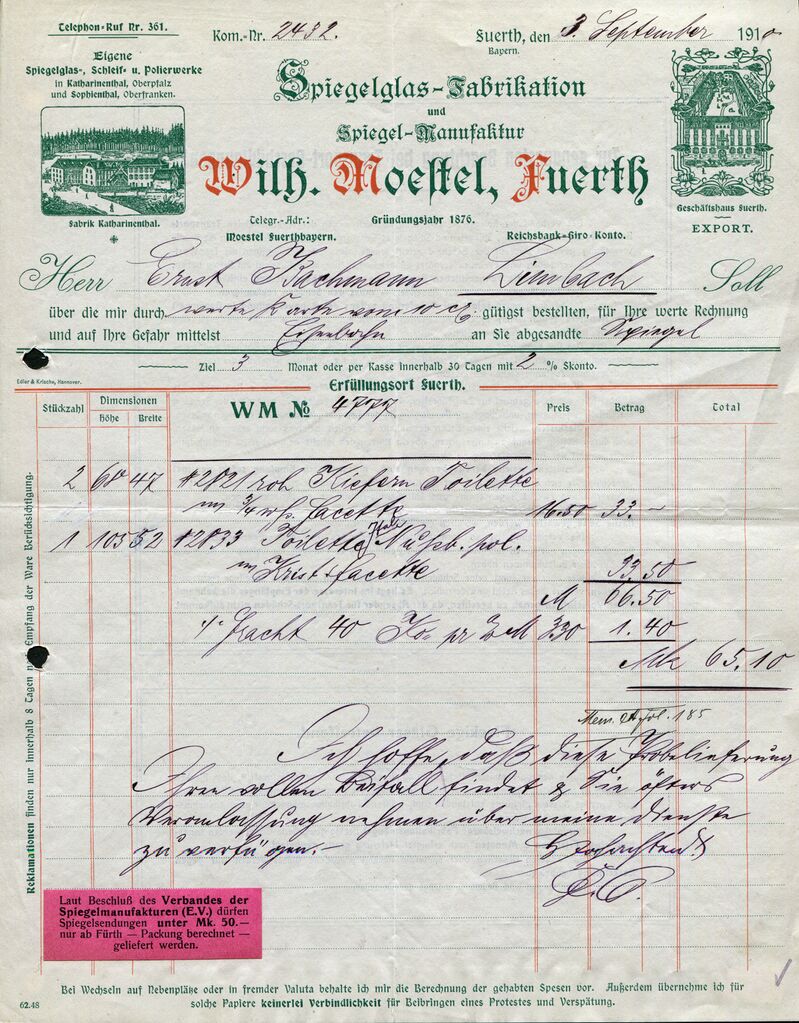 Telephon-Ruf Nr. 361.
Kom.-Nr. 2432.
Fuerth, den 3. September 1910
Bayern.
Eigene
Spiegelglas-, Schleif- u. Polierwerke
in Katharinenthal, Oberpfalz
und Sophienthal, Oberfranken.
Fabrik Katharinenthal.
Spiegelglas-Fabrikation
und
Spiegel-Manufaktur
Wilh. Moestel, Fuerth
Telegr.-Adr.:
Moestel Fuerthbayern.
Gründungsjahr 1876.
Reichsbank-Giro-Konto.
Geschäftshaus Fuerth.
EXPORT.
Herr Ernst Bachmann Limbach Soll
über die mir durch werte Karte vom 10 gütigst bestellten, für Ihre werte Rechnung
und auf Ihre Gefahr mittelst Eisenbahn an Sie abgesandte Spiegel
Ziel 3 Monat oder per Kasse innerhalb 30 Tagen mit 2 % Skonto.
Edler & Krische, Hannover.
Erfüllungsort Fuerth.
Stückzahl
Dimensionen
Höhe Breite
WM No 4777
Preis
Betrag
Total
2 68 47 #2021 roh Kiefern Toilette
m 3/4 Facette 16.50 33.-
1 105 52 #2033 Toilette Nußb. pol.
m Krist. facette 33.50
M 66.50
Fracht 40 Ko pr M 330 1.40
Mk 65.10
Mem. Fol. 185
Ich hoffe, daß diese Probelieferung
Ihren vollen Beifall findet & Sie öfters
Veranlassung nehmen über meine Dienste
zu verfügen.-
Hochachtend
Reklamationen finden nur innerhalb 8 Tagen nach Empfang der Ware Berücksichtigung.
Laut Beschluß des Verbandes der
Spiegelmanufakturen (E.V.) dürfen
Spiegelsendungen unter Mk. 50.—
nur ab Fürth — Packung berechnet —
geliefert werden.
Bei Wechseln auf Nebenplätze oder in fremder Valuta behalte ich mir die Berechnung der gehabten Spesen vor. Außerdem übernehme ich für
solche Papiere keinerlei Verbindlichkeit für Beibringen eines Protestes und Verspätung.
62.48